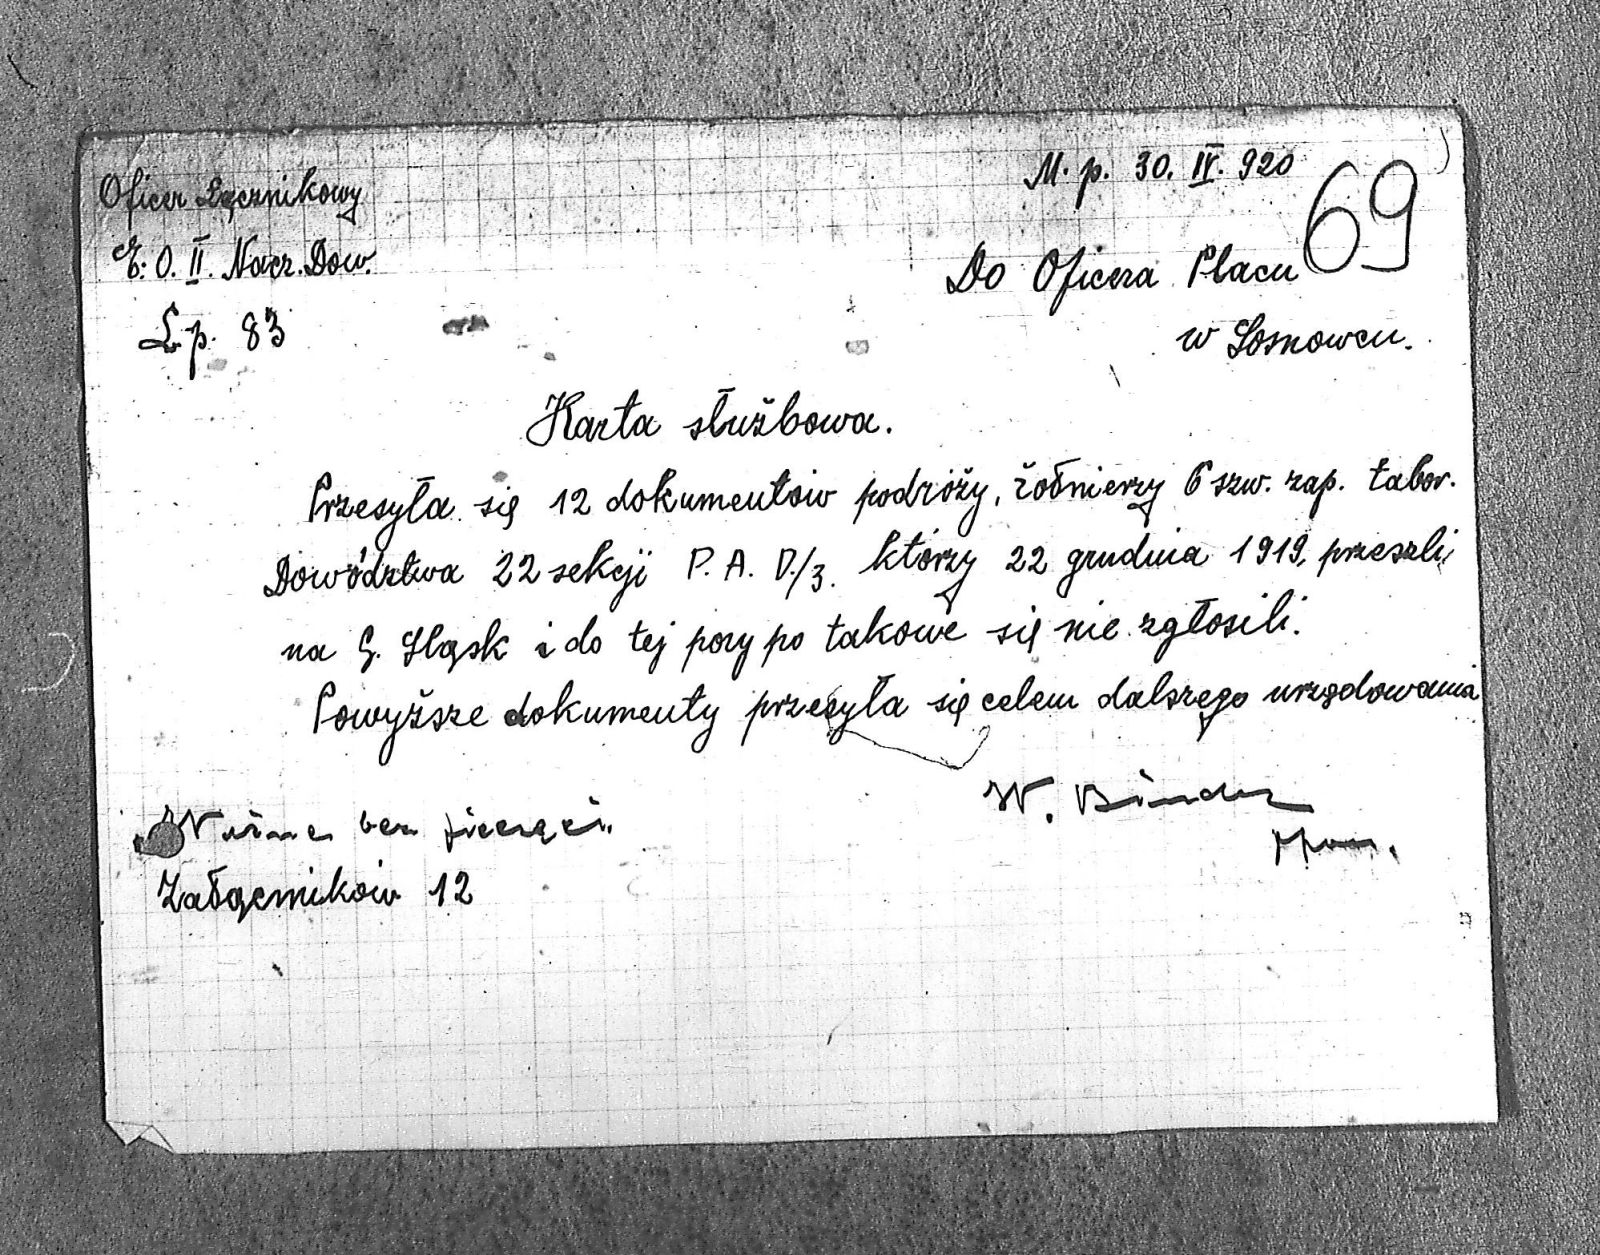 M. p. 30. IV. 920
69
Oficer Łącznikowy
E. O. II. Nacz. Dow.
L. p. 83
Do Oficera Placu
w Sosnowcu.
Karta służbowa.
Przesyła się 12 dokumentów podróży, żołnierzy 6 szw. zap. tabor.
Dowództwa 22 sekcji P. A. D./3. którzy 22 grudnia 1919, przeszli
na G. Sląsk i do tej pory po takowe się nie zgłosili.
Powyższe dokumenty przesyła się celem dalszego urzędowania
W. Binder
Ppor.
Ważne bez pieczęci.
Załączników 12